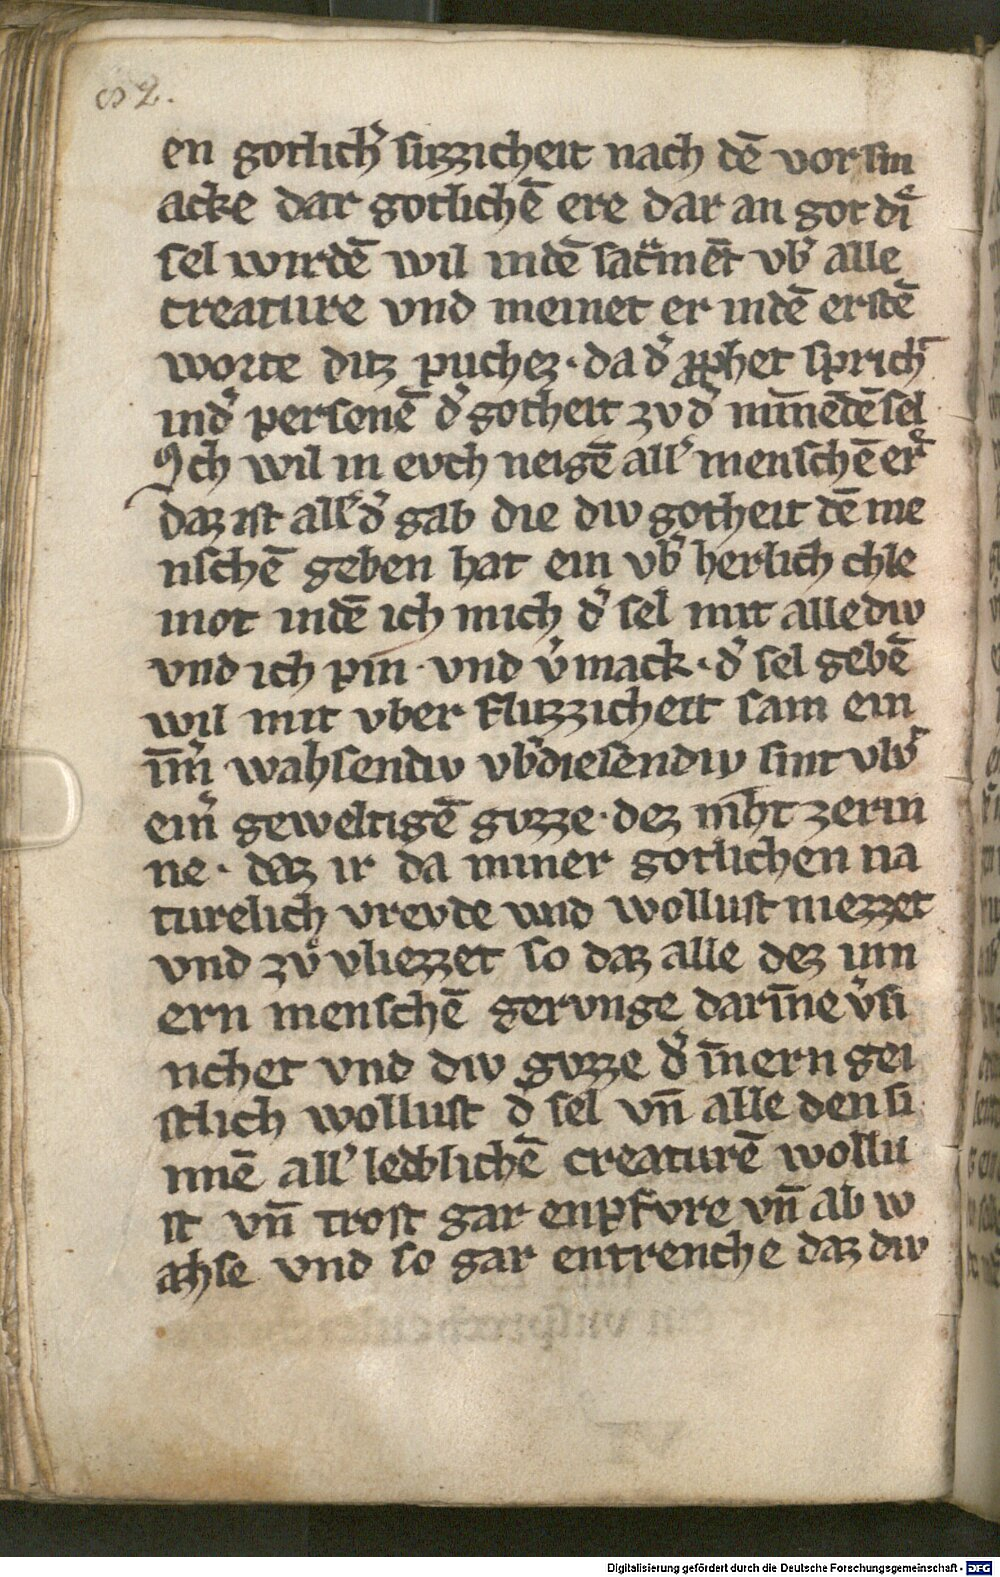 82.
en gotlichˀ suzzicheit nach dē vor sm
acke dar gotlichē ere dar an got di
sel wirdē wil indē sac̄mēt vbˀ alle
creature vnd meinet er indē erstē
worte ditz puchez · da dˀ ꝓphet sprichˀ
indˀ personē dˀ gotheit zv dˀ minnēdē sel
Ich wil in evch neigē allˀ menschē erˀ
daz ist allˀ dˀ gab die div gotheit dē me
nschē geben hat ein vbˀ herlich chle
inot indē ich mich dˀ sel mit alle div
vnd ich pin · vnd vˀmack · dˀ sel gebē
wil mit vber fluzzicheit sam ein
īmˀ wahsendiv vbˀdiesendiv sint vbˀ
einˀ geweltigē guzze · dez niht zerin
ne · daz ir da miner gotlichen na
turelich vrevde vnd wollust niezzet
vnd zvͦ vliezzet so daz alle dez inn
ern menschē gervnge darīne vˀsi
nchet vnd div guzze dˀ īnern gei
stlich wollust dˀ sel vn̄ alle den si
nnē allˀ leiblichē creaturē wollu
st vn̄ trost gar enpfvre vn̄ ab w
ahse vnd so gar entrenche daz div
Digitalisierung gefördert durch die Deutsche Forschungsgemeinschaft - DFG